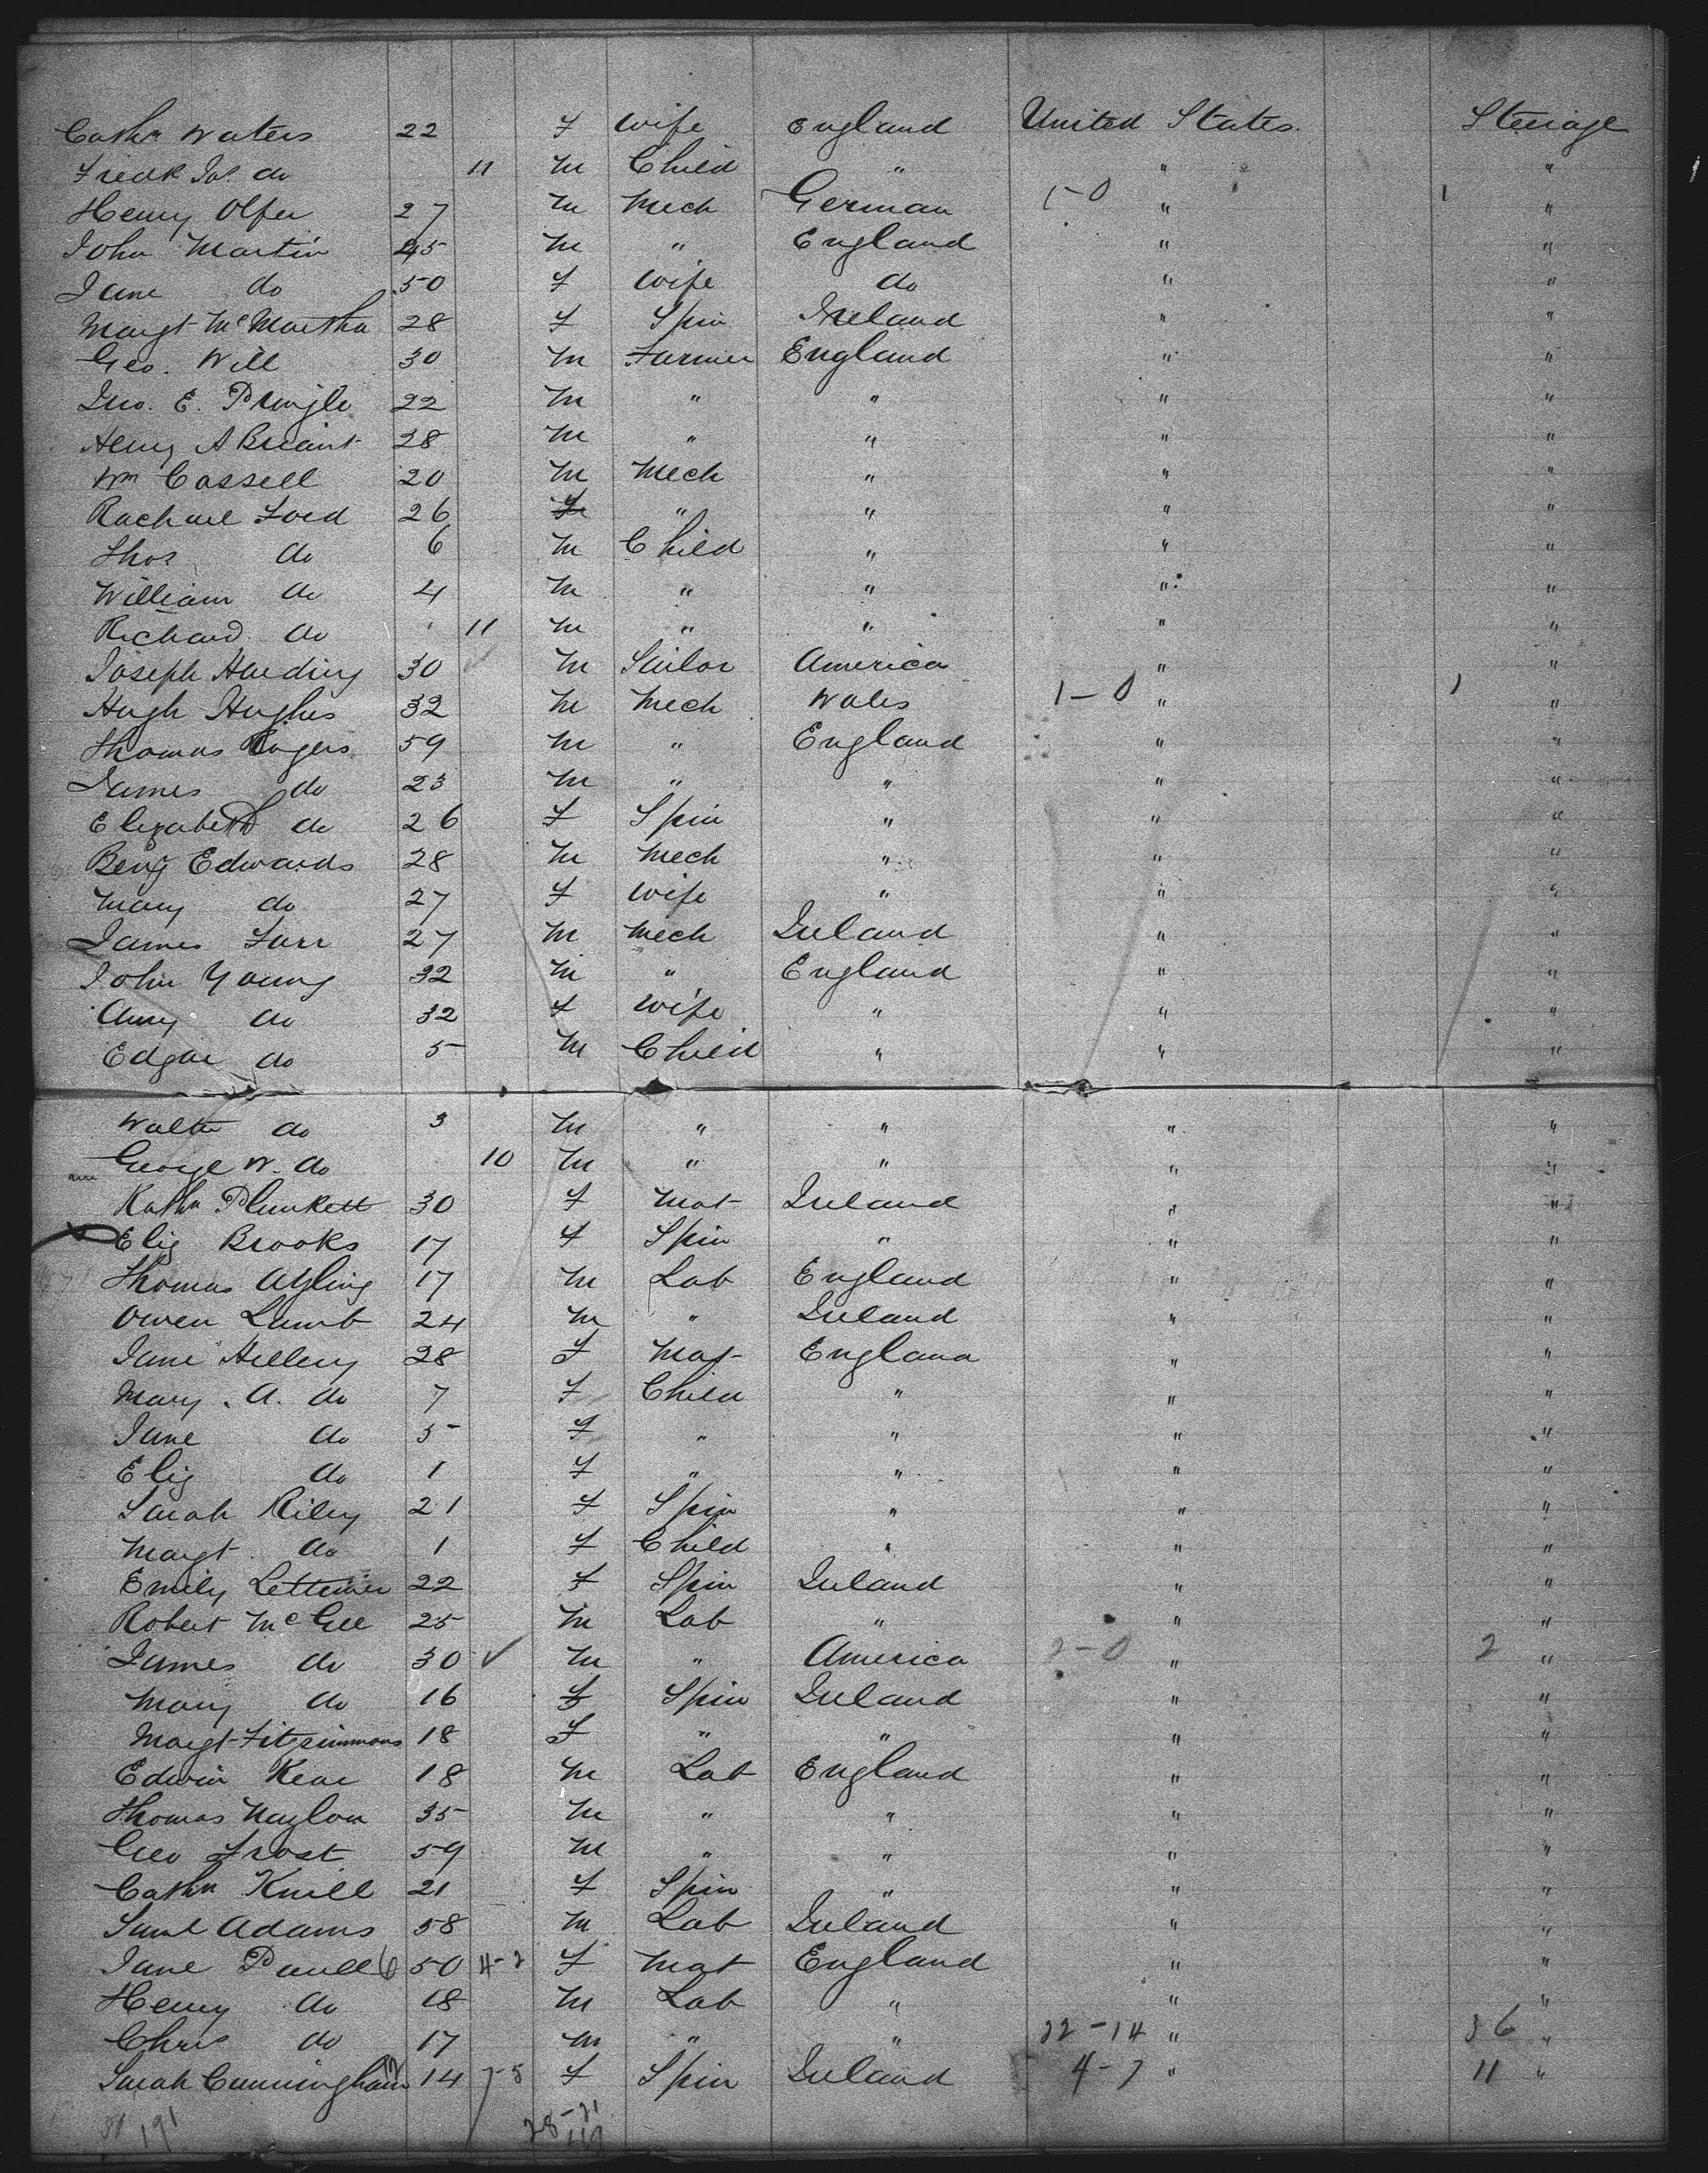 Cathn Waters 22 F Wife England United States. Steerage
Fredk Jos. do 11 M Child " " "
Henry Olfer 27 M Mech German 1-0 " 1 "
John Martin 45 M " England " "
Jane do 50 F Wife do " "
Margt McMartha 28 F Spin Ireland " "
Geo. Will 30 M Farmer England " "
Jno. E. Pringle 22 M " " " "
Henry A Briant 28 M " " " "
Wm Cassell 20 M Mech " " "
Rachael Ford 26 F " " " "
Thos do 6 M Child " " "
William do 4 M " " " "
Richard do 11 M " " " "
Joseph Harding 30 M Sailor America " "
Hugh Hughes 32 M Mech Wales 1-0 " 1 "
Thomas Rogers 59 M " England " "
James do 23 M " " " "
Elizabeth do 26 F Spin " " "
Benj Edwards 28 M Mech " " "
Mary do 27 F Wife " " "
James Farr 27 M Mech Ireland " "
John Young 32 M " England " "
Amy do 32 F Wife " " "
Edgar do 5 M Child " " "
Walter do 3 M " " " "
George W. do 10 M " " " "
Kathn Plunkett 30 F Mat Ireland " "
Eliz Brooks 17 F Spin " " "
Thomas Ayling 17 M Lab England " "
Owen Lamb 24 M " Ireland " "
Jane Hillery 28 F Mat England " "
Mary. A. do 7 F Child " " "
Jane do 5 F " " " "
Eliz do 1 F " " " "
Sarah Riley 21 F Spin " " "
Margt. do 1 F Child " " "
Emily 22 F Spin Ireland " "
Robert McGee 25 M Lab " " "
James do 30 ✓ M " America 2-0 " 2 "
Mary do 16 F Spin Ireland " "
Margt Fitzsimmons 18 F " " " "
Edwin Kear 18 M Lab England " "
Thomas Naylor 35 M " " " "
Geo Frost 59 M " " " "
Cathn Knill 21 F Spin " " "
Saml Adams 58 M Lab Ireland " "
Jane Powell 6 50 4-2 F Mat England " "
Henry do 18 M Lab " " "
Chris do 17 M " " 22-14 " 36 "
Sarah Cunningham 12 14 7-5 F Spin Ireland 4-7 " 11 "
191 28-21